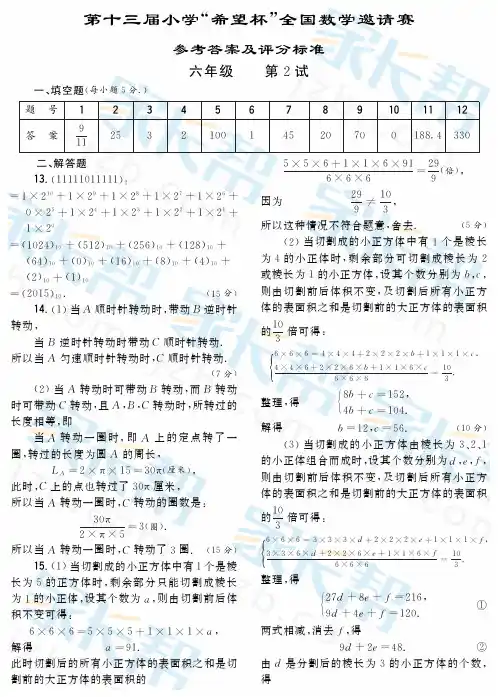 第十三届小学“希望杯”全国数学邀请赛
参考答案及评分标准
六年级 第2试
一、填空题(每小题5分.)
题 号 1 2 3 4 5 6 7 8 9 10 11 12
答 案 9/11 25 3 2 100 1 45 20 70 0 188.4 330
二、解答题
13. (11111011111)₂
=1×2¹⁰+1×2⁹+1×2⁸+1×2⁷+1×2⁶+
0×2⁵+1×2⁴+1×2³+1×2²+1×2¹+
1×2⁰
=(1024)₁₀+(512)₁₀+(256)₁₀+(128)₁₀+
(64)₁₀+(0)₁₀+(16)₁₀+(8)₁₀+(4)₁₀+
(2)₁₀+(1)₁₀
=(2015)₁₀. (15分)
14. (1) 当A顺时针转动时,带动B逆时针
转动,
当B逆时针转动时带动C顺时针转动.
所以当A匀速顺时针转动时,C顺时针转动.
(7分)
(2) 当A转动时可带动B转动,而B转动
时可带动C转动,且A,B,C转动时,所转过的
长度相等,即
当A转动一圈时,即A上的定点转了一
圈,转过的长度为圆A的周长,
L_A=2×π×15=30π(厘米),
此时,C上的点也转过了30π厘米,
所以当A转动一圈时,C转动的圈数是:
30π/(2×π×5)=3(圈).
所以当A转动一圈时,C转动了3圈. (15分)
15. (1) 当切割成的小正方体中有1个是棱
长为5的正方体时,剩余部分只能切割成棱长
为1的小正体,设其个数为a,则由切割前后体
积不变可得:
6×6×6=5×5×5+1×1×1×a,
解得 a=91.
此时切割后的所有小正方体的表面积之和是切
割前的大正方体的表面积的
(5×5×6+1×1×6×91)/(6×6×6)=29/9(倍),
因为 29/9≠10/3,
所以这种情况不符合题意,舍去. (5分)
(2) 当切割成的小正方体中有1个是棱长
为4的小正体时,剩余部分可切割成棱长为2
或棱长为1的小正方体,设其个数分别为b,c,
则由切割前后体积不变,及切割后所有小正方
体的表面积之和是切割前的大正方体的表面积
的10/3倍可得:
{6×6×6=4×4×4+2×2×2×b+1×1×1×c,
(4×4×6+2×2×6×b+1×1×6×c)/(6×6×6)=10/3.
整理,得 {8b+c=152,
4b+c=104.
解得 b=12,c=56. (10分)
(3) 当切割成的小正方体由棱长为3、2、1
的小正体组合而成时,设其个数分别为d,e,f,
则由切割前后体积不变,及切割后所有小正方
体的表面积之和是切割前的大正方体的表面积
的10/3倍可得:
{6×6×6=3×3×3×d+2×2×2×e+1×1×1×f,
(3×3×6×d+2×2×6×e+1×1×6×f)/(6×6×6)=10/3.
整理,得
{27d+8e+f=216,
9d+4e+f=120. ①
两式相减,消去f,得
9d+2e=48. ②
由d是分割后的棱长为3的小正方体的个数,
得